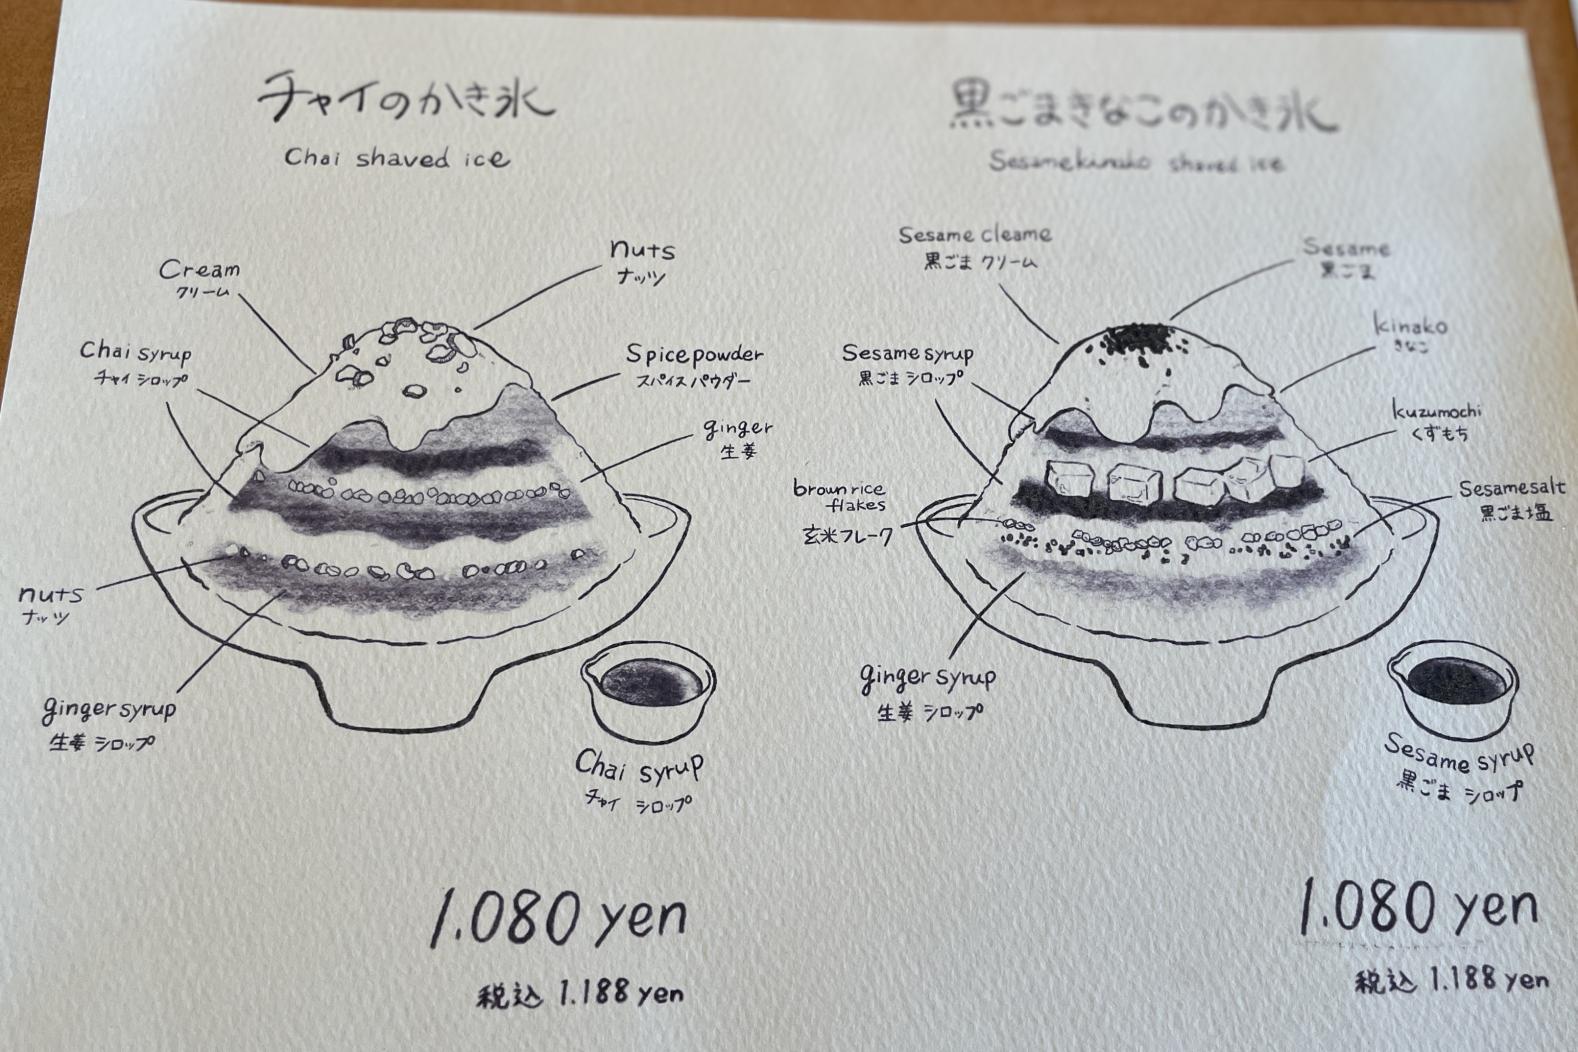 チャイのかき氷
Chai shaved ice
Cream
クリーム
nuts
ナッツ
Chai syrup
チャイシロップ
Spice powder
スパイスパウダー
ginger
生姜
nuts
ナッツ
ginger syrup
生姜 シロップ
Chai syrup
チャイ シロップ
1.080 yen
税込 1.188 yen
黒ごまきなこのかき氷
Sesamekinako shaved ice
Sesame cleame
黒ごま クリーム
Sesame
黒ごま
Sesame syrup
黒ごま シロップ
kinako
きなこ
kuzumochi
くずもち
brown rice
flakes
玄米フレーク
Sesame salt
黒ごま塩
ginger syrup
生姜 シロップ
Sesame syrup
黒ごま シロップ
1.080 yen
税込 1.188 yen